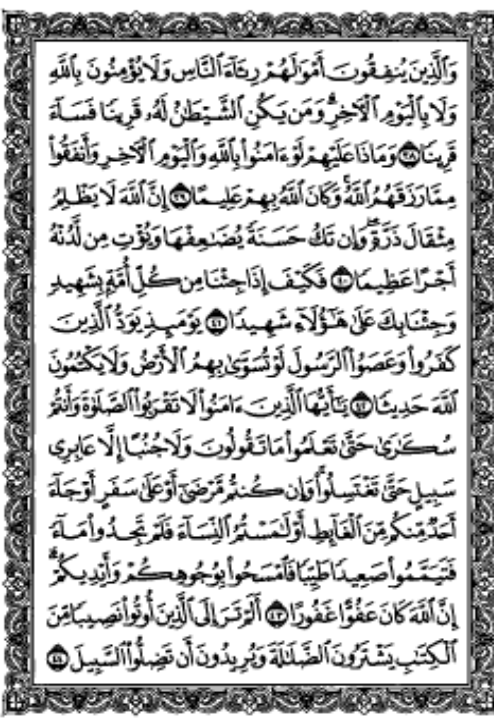 وَٱلَّذِينَ يُنفِقُونَ أَمْوَٰلَهُمْ رِئَآءَ ٱلنَّاسِ وَلَا يُؤْمِنُونَ بِٱللَّهِ
وَلَا بِٱلْيَوْمِ ٱلْءَاخِرِ ۗ وَمَن يَكُنِ ٱلشَّيْطَٰنُ لَهُۥ قَرِينًا فَسَآءَ
قَرِينًا ۝٣٨ وَمَاذَا عَلَيْهِمْ لَوْ ءَامَنُوا۟ بِٱللَّهِ وَٱلْيَوْمِ ٱلْءَاخِرِ وَأَنفَقُوا۟
مِمَّا رَزَقَهُمُ ٱللَّهُ ۚ وَكَانَ ٱللَّهُ بِهِمْ عَلِيمًا ۝٣٩ إِنَّ ٱللَّهَ لَا يَظْلِمُ
مِثْقَالَ ذَرَّةٍ ۖ وَإِن تَكُ حَسَنَةً يُضَٰعِفْهَا وَيُؤْتِ مِن لَّدُنْهُ
أَجْرًا عَظِيمًا ۝٤٠ فَكَيْفَ إِذَا جِئْنَا مِن كُلِّ أُمَّةٍۭ بِشَهِيدٍ
وَجِئْنَا بِكَ عَلَىٰ هَٰٓؤُلَآءِ شَهِيدًا ۝٤١ يَوْمَئِذٍ يَوَدُّ ٱلَّذِينَ
كَفَرُوا۟ وَعَصَوُا۟ ٱلرَّسُولَ لَوْ تُسَوَّىٰ بِهِمُ ٱلْأَرْضُ وَلَا يَكْتُمُونَ
ٱللَّهَ حَدِيثًا ۝٤٢ يَٰٓأَيُّهَا ٱلَّذِينَ ءَامَنُوا۟ لَا تَقْرَبُوا۟ ٱلصَّلَوٰةَ وَأَنتُمْ
سُكَٰرَىٰ حَتَّىٰ تَعْلَمُوا۟ مَا تَقُولُونَ وَلَا جُنُبًا إِلَّا عَابِرِى
سَبِيلٍ حَتَّىٰ تَغْتَسِلُوا۟ ۚ وَإِن كُنتُم مَّرْضَىٰٓ أَوْ عَلَىٰ سَفَرٍ أَوْ جَآءَ
أَحَدٌ مِّنكُم مِّنَ ٱلْغَآئِطِ أَوْ لَٰمَسْتُمُ ٱلنِّسَآءَ فَلَمْ تَجِدُوا۟ مَآءً
فَتَيَمَّمُوا۟ صَعِيدًا طَيِّبًا فَٱمْسَحُوا۟ بِوُجُوهِكُمْ وَأَيْدِيكُمْ ۗ
إِنَّ ٱللَّهَ كَانَ عَفُوًّا غَفُورًا ۝٤٣ أَلَمْ تَرَ إِلَى ٱلَّذِينَ أُوتُوا۟ نَصِيبًا مِّنَ
ٱلْكِتَٰبِ يَشْتَرُونَ ٱلضَّلَٰلَةَ وَيُرِيدُونَ أَن تَضِلُّوا۟ ٱلسَّبِيلَ ۝٤٤